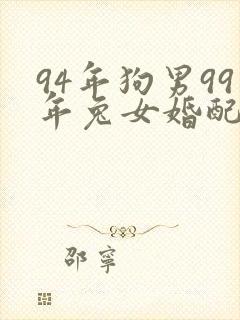 94年狗男99
年兔女婚配
邵寧